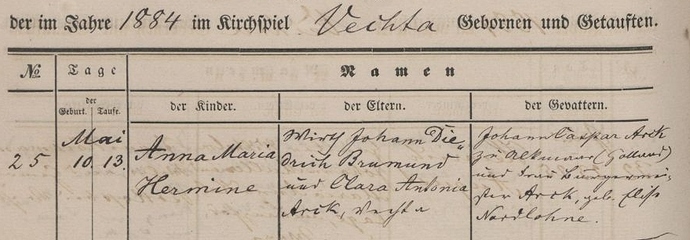 der im Jahre 1884 im Kirchspiel Vechta Gebornen und Getauften.
No Tage Namen
der Geburt. Taufe. der Kinder. der Eltern. der Gevattern.
Mai
25 10. 13. Anna Maria Hermine
Wirth Johann Die-
drich Brumund
und Clara Antonia
Arck, Vechta
Johann Caspar Arck
zu Alkmaar (Holland)
und Frau Bürgermei-
ster Arck, geb.
Nordlohne.